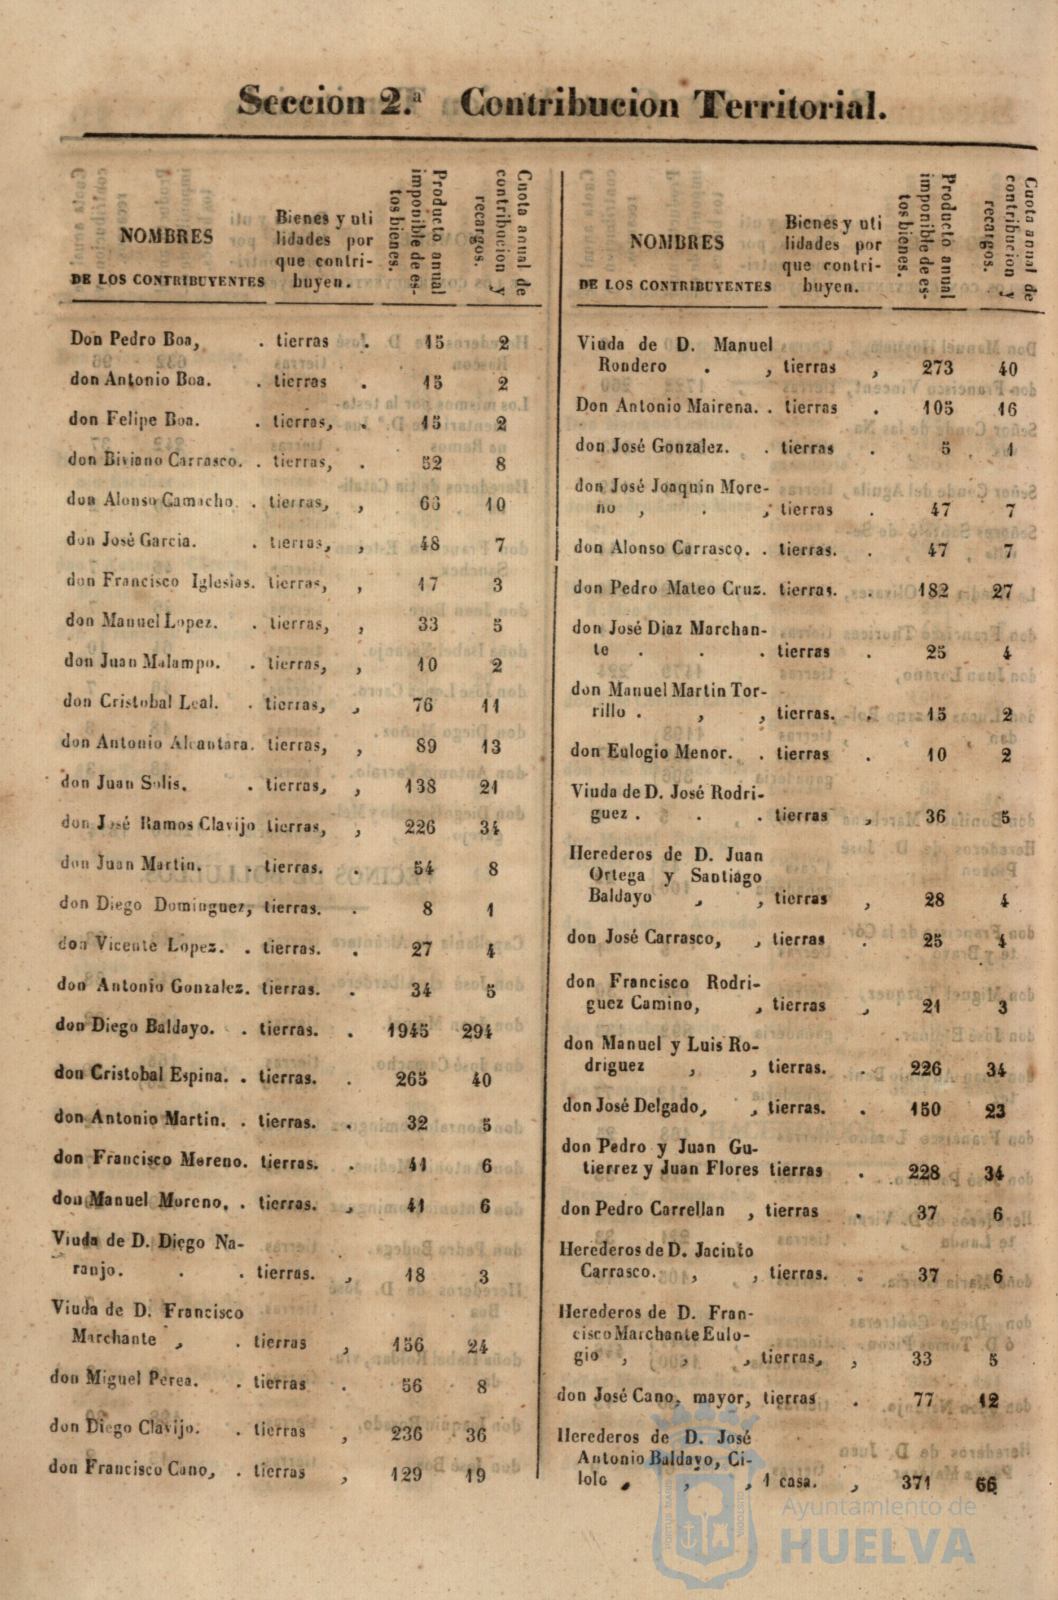 Seccion 2.ª Contribucion Territorial.
NOMBRES
DE LOS CONTRIBUYENTES
Bienes y uti
lidades por
que contri-
buyen.
Producto anual
imponible de es-
tos bienes.
Cuota anual de
contribucion y
recargos.
Don Pedro Boa, . tierras . 15 2
don Antonio Boa. . tierras . 15 2
don Felipe Boa. . tierras, . 15 2
don Biviano Carrasco. . tierras, . 52 8
don Alonso Camacho. . tierras, , 66 10
don José Garcia. . tierras, , 48 7
don Francisco Iglesias. tierras, , 17 3
don Manuel Lopez. . tierras, , 33 5
don Juan Malampo. . tierras, , 10 2
don Cristobal Leal. . tierras, , 76 11
don Antonio Alcantara. tierras, , 89 13
don Juan Solis. . tierras, , 138 21
don José Ramos Clavijo tierras, , 226 34
don Juan Martin. . tierras. . 54 8
don Diego Dominguez, tierras. . 8 1
don Vicente Lopez. . tierras. . 27 4
don Antonio Gonzalez. tierras. . 34 5
don Diego Baldayo. . tierras. . 1945 294
don Cristobal Espina. . tierras. . 265 40
don Antonio Martin. . tierras. . 32 5
don Francisco Moreno. tierras. . 41 6
don Manuel Moreno, . tierras. , 41 6
Viuda de D. Diego Na-
ranjo. . . tierras. , 18 3
Viuda de D. Francisco
Marchante , . tierras , 156 24
don Miguel Perea. . tierras . 56 8
don Diego Clavijo. . tierras , 236 36
don Francisco Cano, . tierras , 129 19
NOMBRES
DE LOS CONTRIBUYENTES
Bienes y uti
lidades por
que contri-
buyen.
Producto anual
imponible de es-
tos bienes.
Cuota anual de
contribucion y
recargos.
Viuda de D. Manuel
Rondero . , tierras , 273 40
Don Antonio Mairena. . tierras . 105 16
don José Gonzalez. . tierras . 5 1
don José Joaquin More-
no , . , tierras . 47 7
don Alonso Carrasco. . tierras. . 47 7
don Pedro Mateo Cruz. tierras. . 182 27
don José Diaz Marchan-
te . . . tierras . 25 4
don Manuel Martin Tor-
rillo . , , tierras. . 15 2
don Eulogio Menor. . tierras . 10 2
Viuda de D. José Rodri-
guez . . . tierras , 36 5
Herederos de D. Juan
Ortega y Santiago
Baldayo , , tierras , 28 4
don José Carrasco, , tierras . 25 4
don Francisco Rodri-
guez Camino, , tierras , 21 3
don Manuel y Luis Ro-
driguez , , tierras. . 226 34
don José Delgado, , tierras. . 150 23
don Pedro y Juan Gu-
tierrez y Juan Flores tierras . 228 34
don Pedro Carrellan , tierras . 37 6
Herederos de D. Jacinto
Carrasco. , , tierras. . 37 6
Herederos de D. Fran-
cisco Marchante Eulo-
gio , , , tierras, , 33 5
don José Cano, mayor, tierras . 77 12
Herederos de D. José
Antonio Baldayo, Ci-
lolo , , , 1 casa. , 371 66
Ayuntamiento de
HUELVA